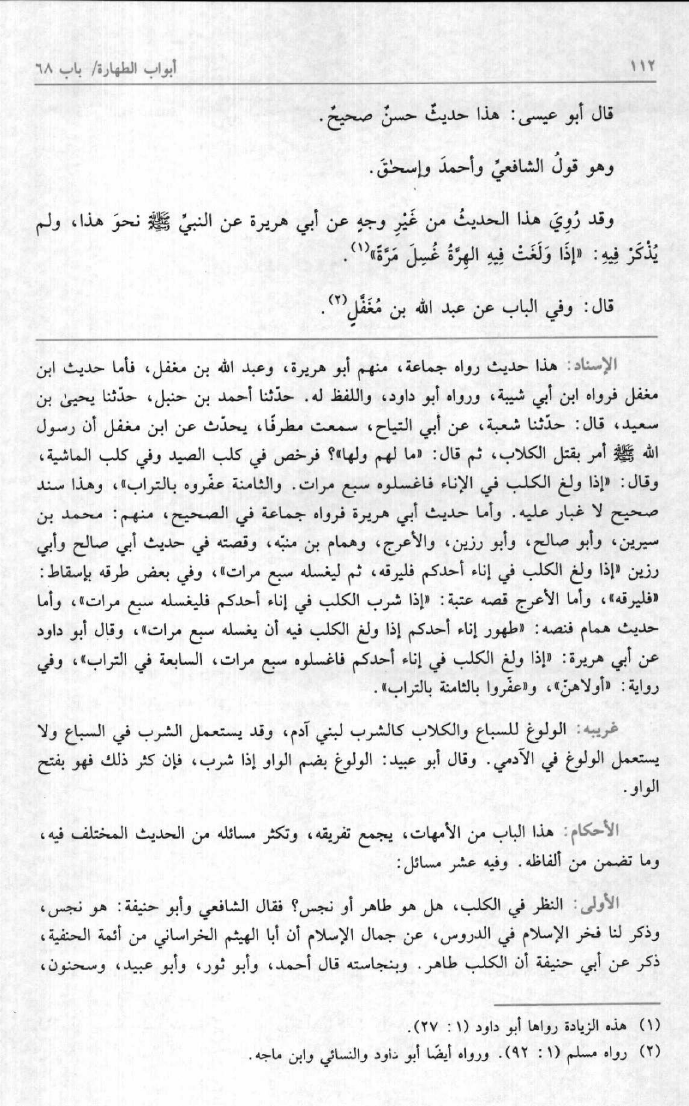 ١١٢ أبواب الطهارة/ باب ٦٨
قال أبو عيسى: هذا حديثٌ حسنٌ صحيحٌ.
وهو قولُ الشافعيِّ وأحمدَ وإسحٰقَ.
وقد رُوِيَ هذا الحديثُ من غَيْرِ وجهٍ عن أبي هريرة عن النبيِّ ﷺ نحوَ هذا، ولم
يُذْكَرْ فِيهِ: «إِذَا وَلَغَتْ فِيهِ الهِرَّةُ غُسِلَ مَرَّةً»(١).
قال: وفي الباب عن عبد الله بن مُغَفَّلٍ(٢).
الإسناد: هذا حديث رواه جماعة، منهم أبو هريرة، وعبد الله بن مغفل، فأما حديث ابن
مغفل فرواه ابن أبي شيبة، ورواه أبو داود، واللفظ له. حدّثنا أحمد بن حنبل، حدّثنا يحيىٰ بن
سعيد، قال: حدّثنا شعبة، عن أبي التياح، سمعت مطرفًا، يحدّث عن ابن مغفل أن رسول
الله ﷺ أمر بقتل الكلاب، ثم قال: «ما لهم ولها»؟ فرخص في كلب الصيد وفي كلب الماشية،
وقال: «إذا ولغ الكلب في الإناء فاغسلوه سبع مرات. والثامنة عفّروه بالتراب»، وهذا سند
صحيح لا غبار عليه. وأما حديث أبي هريرة فرواه جماعة في الصحيح، منهم: محمد بن
سيرين، وأبو صالح، وأبو رزين، والأعرج، وهمام بن منبّه، وقصته في حديث أبي صالح وأبي
رزين «إذا ولغ الكلب في إناء أحدكم فليرقه، ثم ليغسله سبع مرات»، وفي بعض طرقه بإسقاط:
«فليرقه»، وأما الأعرج قصه عتبة: «إذا شرب الكلب في إناء أحدكم فليغسله سبع مرات»، وأما
حديث همام فنصه: «طهور إناء أحدكم إذا ولغ الكلب فيه أن يغسله سبع مرات»، وقال أبو داود
عن أبي هريرة: «إذا ولغ الكلب في إناء أحدكم فاغسلوه سبع مرات، السابعة في التراب»، وفي
رواية: «أولاهنّ»، و«عفّروا بالثامنة بالتراب».
غريبه: الولوغ للسباع والكلاب كالشرب لبني آدم، وقد يستعمل الشرب في السباع ولا
يستعمل الولوغ في الآدمي. وقال أبو عبيد: الولوغ بضم الواو إذا شرب، فإن كثر ذلك فهو بفتح
الواو.
الأحكام: هذا الباب من الأمهات، يجمع تفريقه، وتكثر مسائله من الحديث المختلف فيه،
وما تضمن من ألفاظه. وفيه عشر مسائل:
الأولى: النظر في الكلب، هل هو طاهر أو نجس؟ فقال الشافعي وأبو حنيفة: هو نجس،
وذكر لنا فخر الإسلام في الدروس، عن جمال الإسلام أن أبا الهيثم الخراساني من أئمة الحنفية،
ذكر عن أبي حنيفة أن الكلب طاهر. وبنجاسته قال أحمد، وأبو ثور، وأبو عبيد، وسحنون،
(١) هذه الزيادة رواها أبو داود (١ : ٢٧).
(٢) رواه مسلم (١ : ٩٢). ورواه أيضًا أبو داود والنسائي وابن ماجه.